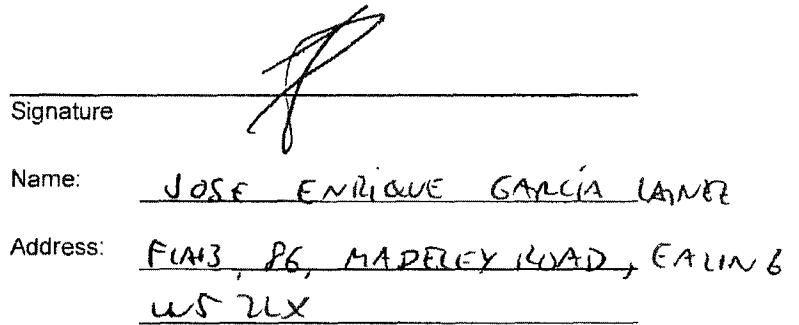 Signature
Name: JOSE ENRIQUE GARCÍA LAINEZ
Address: FLAT 3, 86, MADELEY ROAD, EALING
W5 2LX